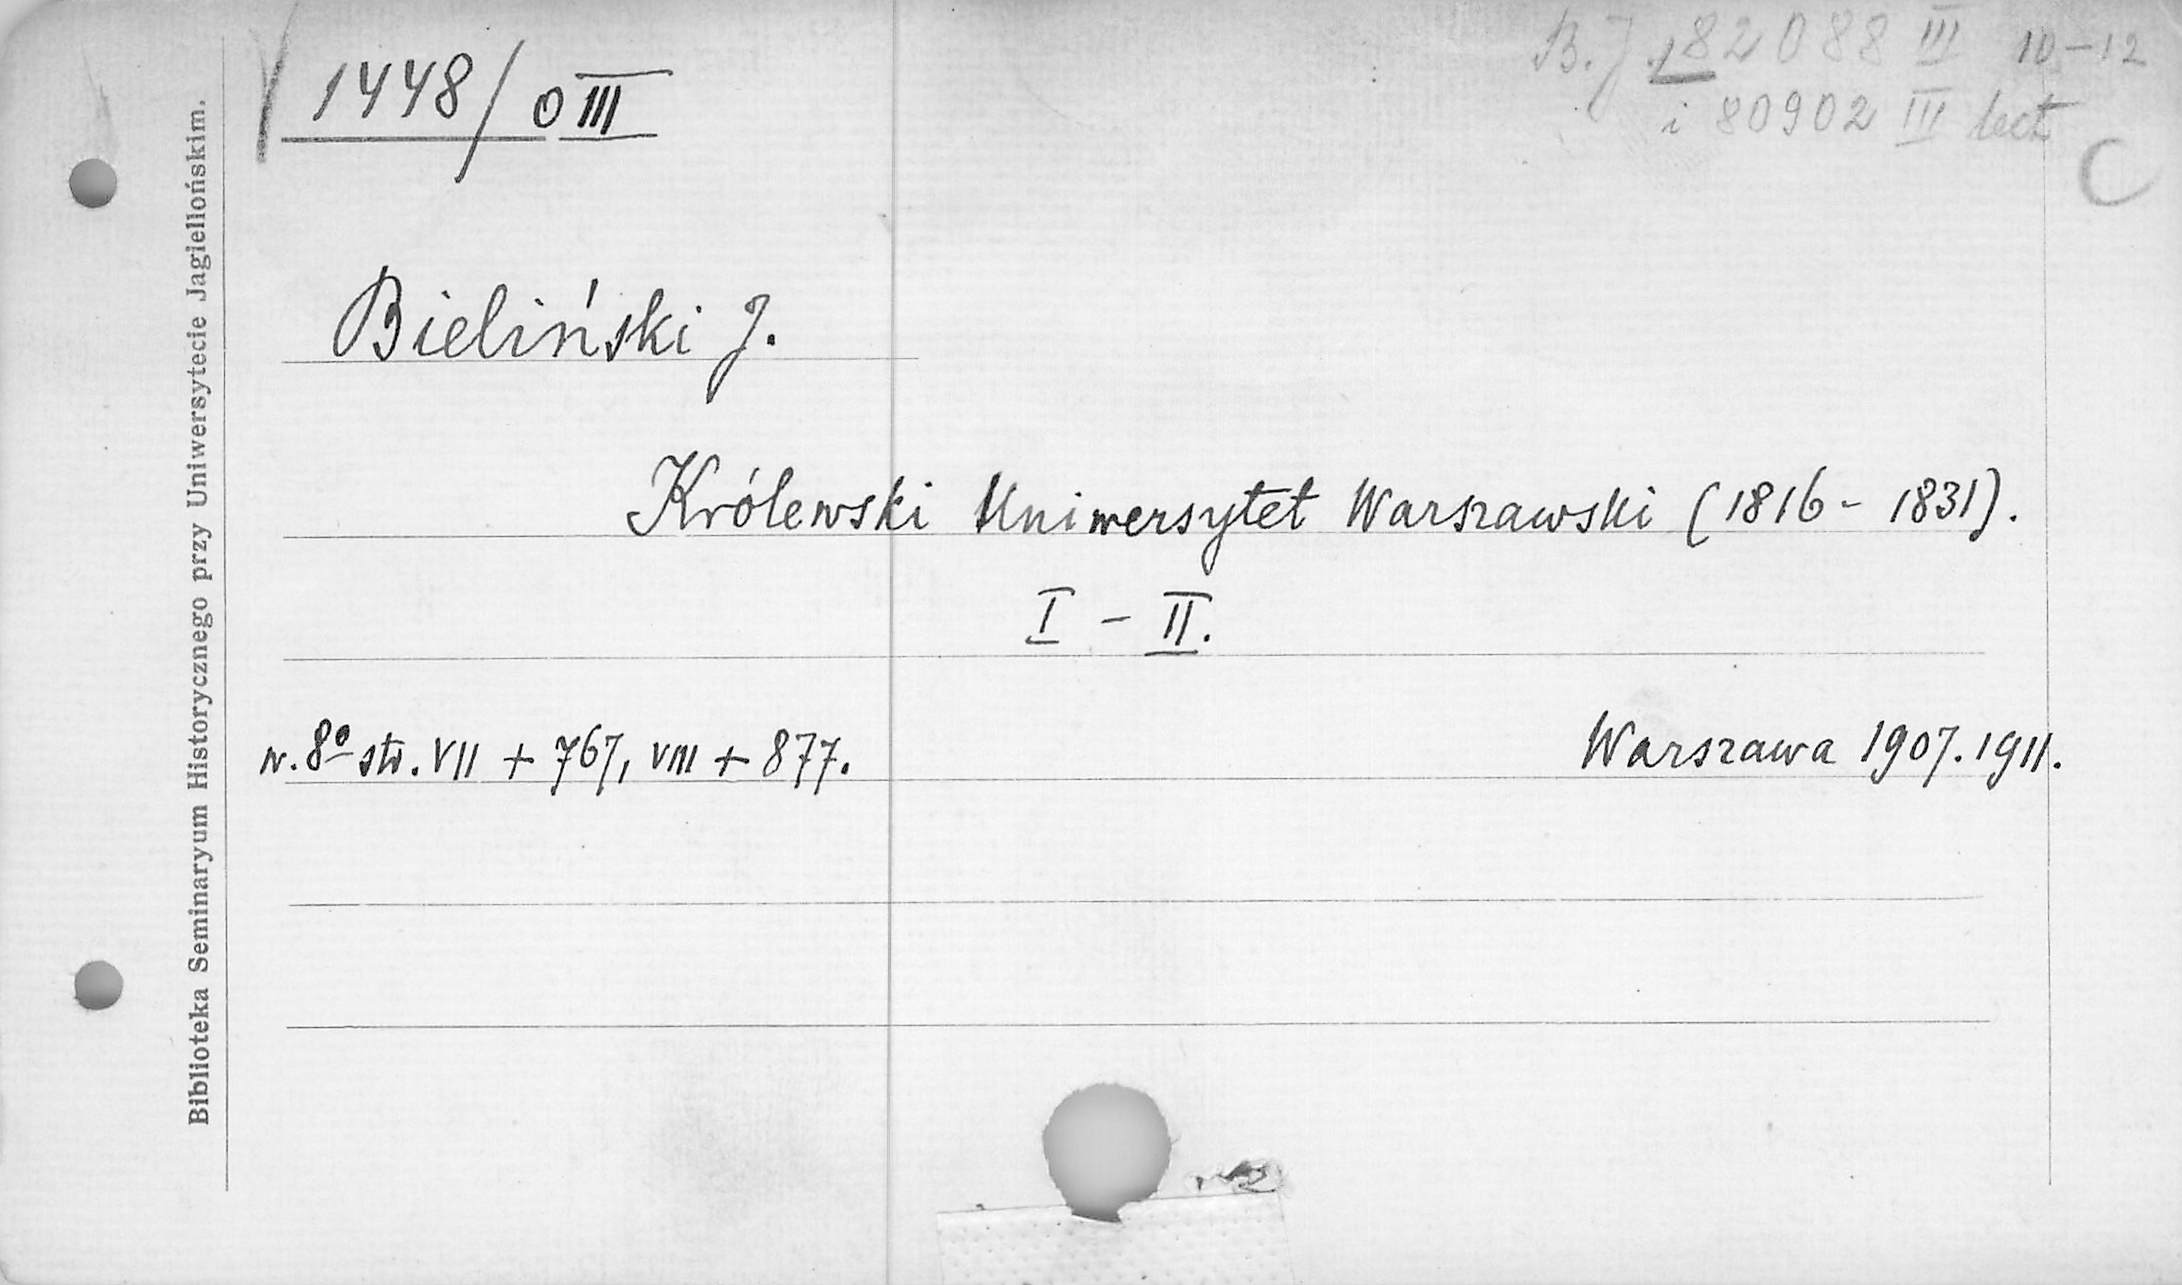 1448/0 III
B. J. 182088 III 10-12
i 80902 III lect
C
Bieliński J.
Królewski Uniwersytet Warszawski (1816 - 1831).
I - II.
w. 8º str. VII + 767, VIII + 877.
Warszawa 1907. 1911.
Biblioteka Seminaryum Historycznego przy Uniwersytecie Jagiellońskim.